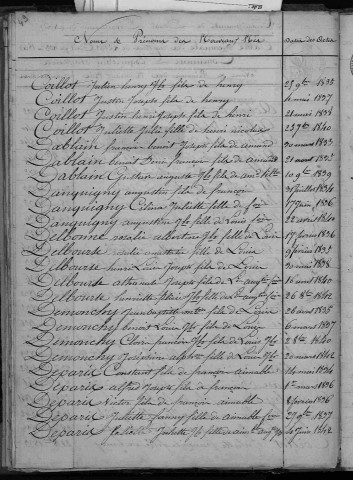 Noms & Prénoms des Nouveaux Nés Dates des Actes
Coillot Julien henry Jh fils de henry 25 9bre 1835
Coillot Justin Joseph fils de henry 4 mai 1837
Coillot Justin henri Joseph fils de henri 21 mars 1838
Coillot Juliette Julie fille de henri nicolas 23 7bre 1840
Dablain françois benoit Joseph fils de amand 30 mars 1833
Dablain benoit françois fils de amand 21 avril 1833
Dablain auguste Jh fils de 10 9bre 1839
Danguigny augustin fils de françois 31 juillet 1834
Danguigny Celina Juliette fille de fcois 17 juin 1836
Danguigny augustine Jh fille de Louis fcois 22 avril 1840
Delbonne rosalie albertine Jh fille de Louis 17 février 1836
Delbourse fille de Louis 9 février 1835
Delbourse henri Louis Joseph fils de Louis 30 mai 1838
Delbourse Joseph fils de 16 août 1840
Delbourse henriette Jh fille de 26 8bre 1842
Demonchy Jean baptiste fils de Louis 28 avril 1835
Demonchy benoit Louis Jh fils de Louis 6 mars 1837
Demonchy Cloris françois Jh fils de Louis Jh 2 8bre 1840
Demonchy Joséphine fille de Louis Jh 20 mars 1842
Deparis Constant fils de françois aimable 14 mai 1834
Deparis alfred Joseph fils de françois 1er mars 1836
Deparis Victor fils de françois aimable 8 février 1836
Deparis Juliette fanny fille de aimable fcois 27 9bre 1837
Deparis Juliette Jh fille de 4 juin 1842